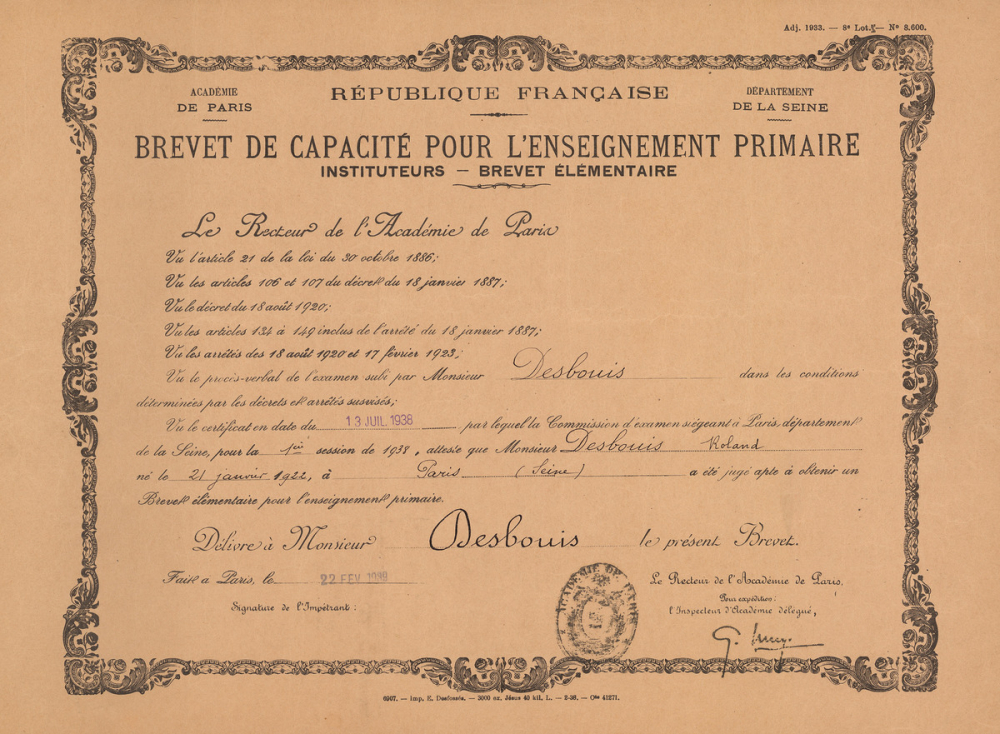 Adj. 1933. — 8e Lot. — No 8.600.
ACADÉMIE
DE PARIS
RÉPUBLIQUE FRANÇAISE
DÉPARTEMENT
DE LA SEINE
BREVET DE CAPACITÉ POUR L'ENSEIGNEMENT PRIMAIRE
INSTITUTEURS — BREVET ÉLÉMENTAIRE
Le Recteur de l'Académie de Paris
Vu l'article 21 de la loi du 30 octobre 1886;
Vu les articles 106 et 107 du décret du 18 janvier 1887;
Vu le décret du 18 août 1920;
Vu les articles 134 à 149 inclus de l'arrêté du 18 janvier 1887;
Vu les arrêtés des 18 août 1920 et 17 février 1923;
Vu le procès-verbal de l'examen subi par Monsieur Desbouis dans les conditions
déterminées par les décrets et arrêtés susvisés;
Vu le certificat en date du 13 JUIL 1938, par lequel la Commission d'examen siégeant à Paris, département
de la Seine, pour la 1ère session de 1938, atteste que Monsieur Desbouis Roland
né le 21 janvier 1922, à Paris (Seine) a été jugé apte à obtenir un
Brevet élémentaire pour l'enseignement primaire.
Délivre à Monsieur Desbouis le présent Brevet.
Fait à Paris, le 22 FEV 1939
Le Recteur de l'Académie de Paris,
Signature de l'Impétrant:
Pour expédition:
l'Inspecteur d'Académie délégué,
ACADÉMIE DE PARIS
6907. — Imp. E. Desfossés. — 3000 ex. Jésus 40 kil. L. — 2-38. — Cde 41271.